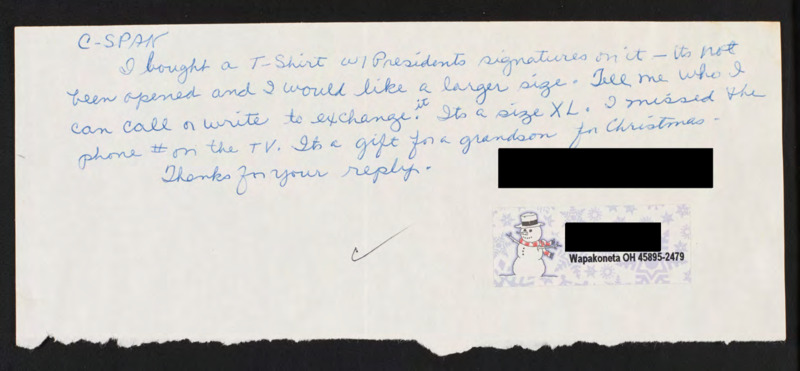 C-SPAN
I bought a T-Shirt w/Presidents signatures on it – its not
been opened and I would like a larger size. Tell me who I
can call or write to exchange it? Its a size XL. I missed the
phone # on the TV. Its a gift for a grandson for Christmas -
Thanks for your reply.
Wapakoneta OH 45895-2479